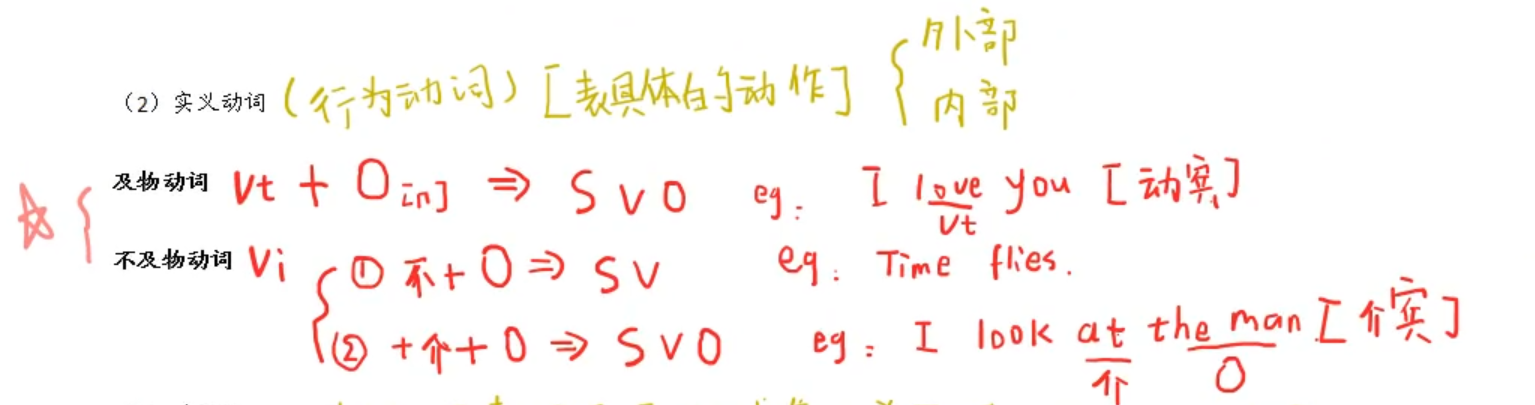 外部
(2) 实义动词 (行为动词) [表具体的动作] {
内部
☆ { 及物动词 Vt + O [n] ⇒ S V O eg: I love you [动宾]
Vt
不及物动词 Vi { ① 不+O ⇒ S V eg: Time flies.
② +介+O ⇒ S V O eg: I look at the man [介宾]
介 O